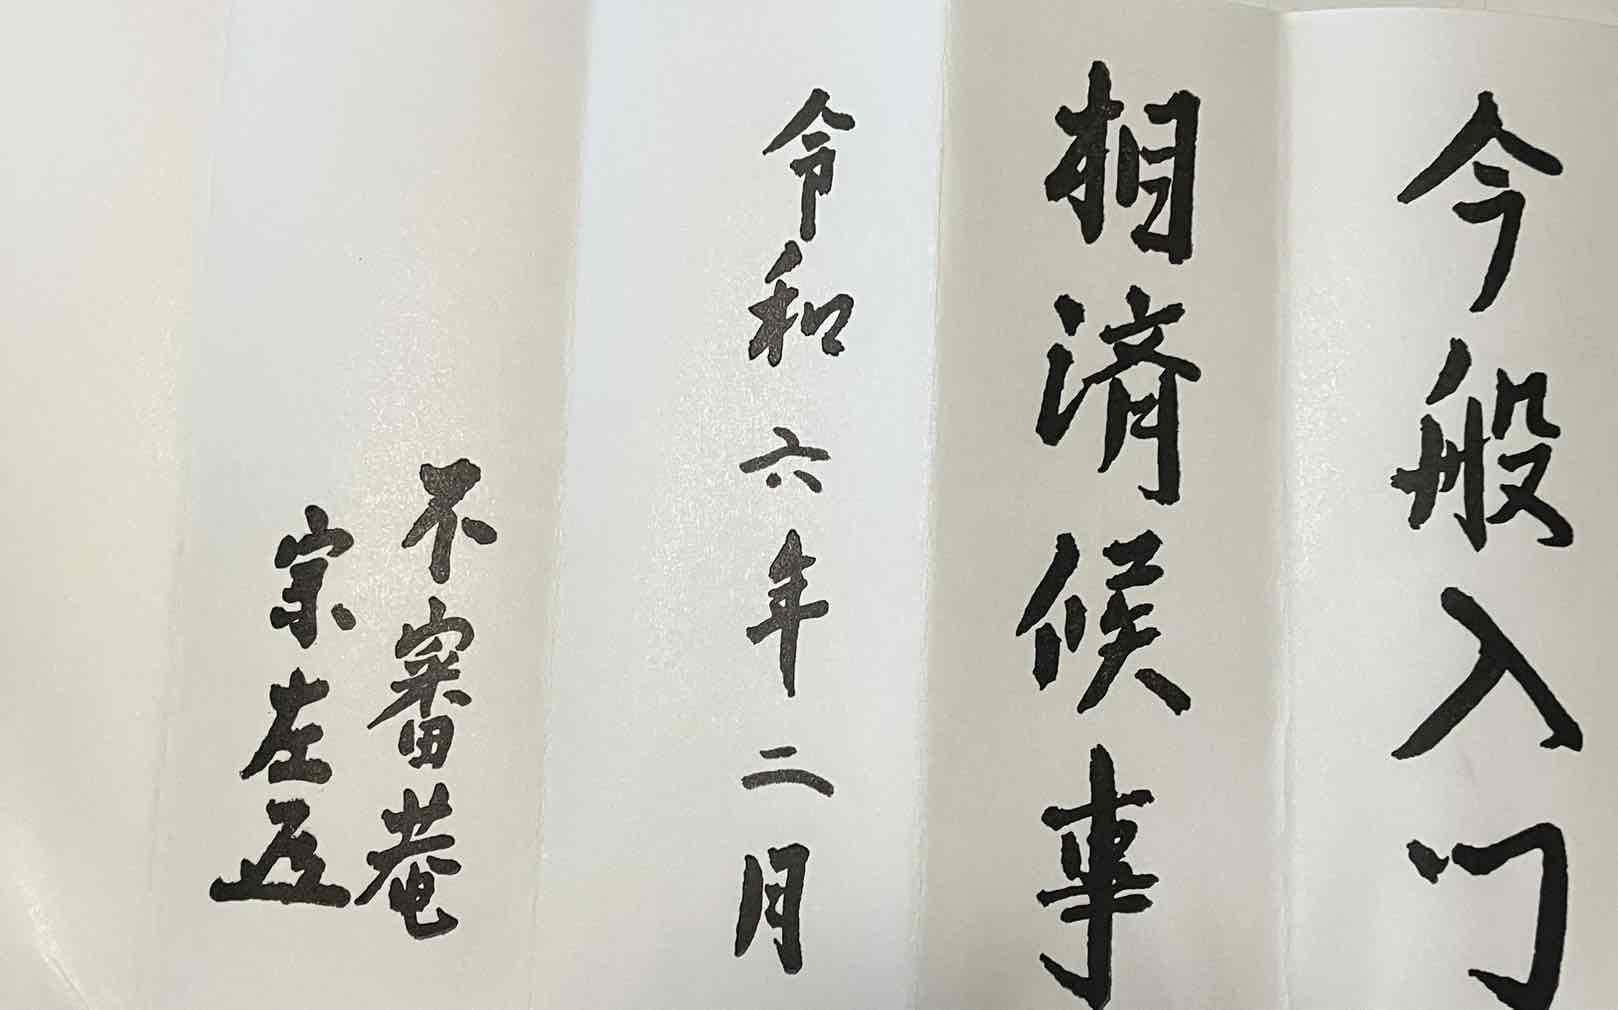 今般入門
相済候事
令和六年二月
不審菴
宗左